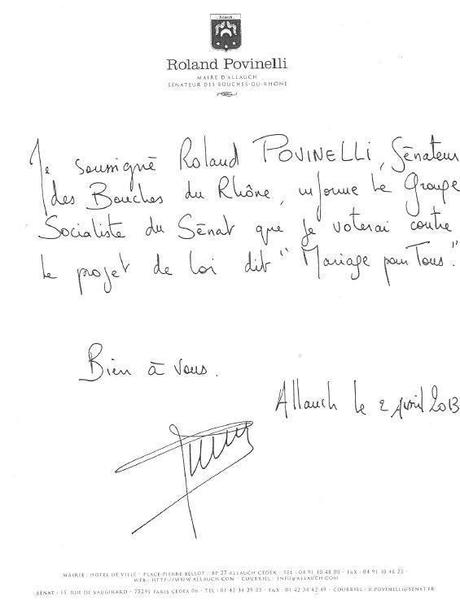 Roland Povinelli
MAIRE D'ALLAUCH
SÉNATEUR DES BOUCHES-DU-RHÔNE
Je soussigné Roland POVINELLI, Sénateur
des Bouches du Rhône, informe le Groupe
Socialiste du Sénat que je voterai contre
le projet de loi dit "Mariage pour Tous".
Bien à vous.
Allauch le 2 Avril 2013
MAIRIE: HÔTEL DE VILLE - PLACE PIERRE BELLOT - BP 27 ALLAUCH CEDEX - TÉL 04 91 10 48 00 - FAX 04 91 10 48 23
WEB: HTTP://WWW.ALLAUCH.COM - COURRIEL: INFO@ALLAUCH.COM
SÉNAT - 15, RUE DE VAUGIRARD - 75291 PARIS CEDEX 06 - TÉL 01 42 34 29 33 - FAX 01 42 34 42 49 - COURRIEL: R.POVINELLI@SENAT.FR